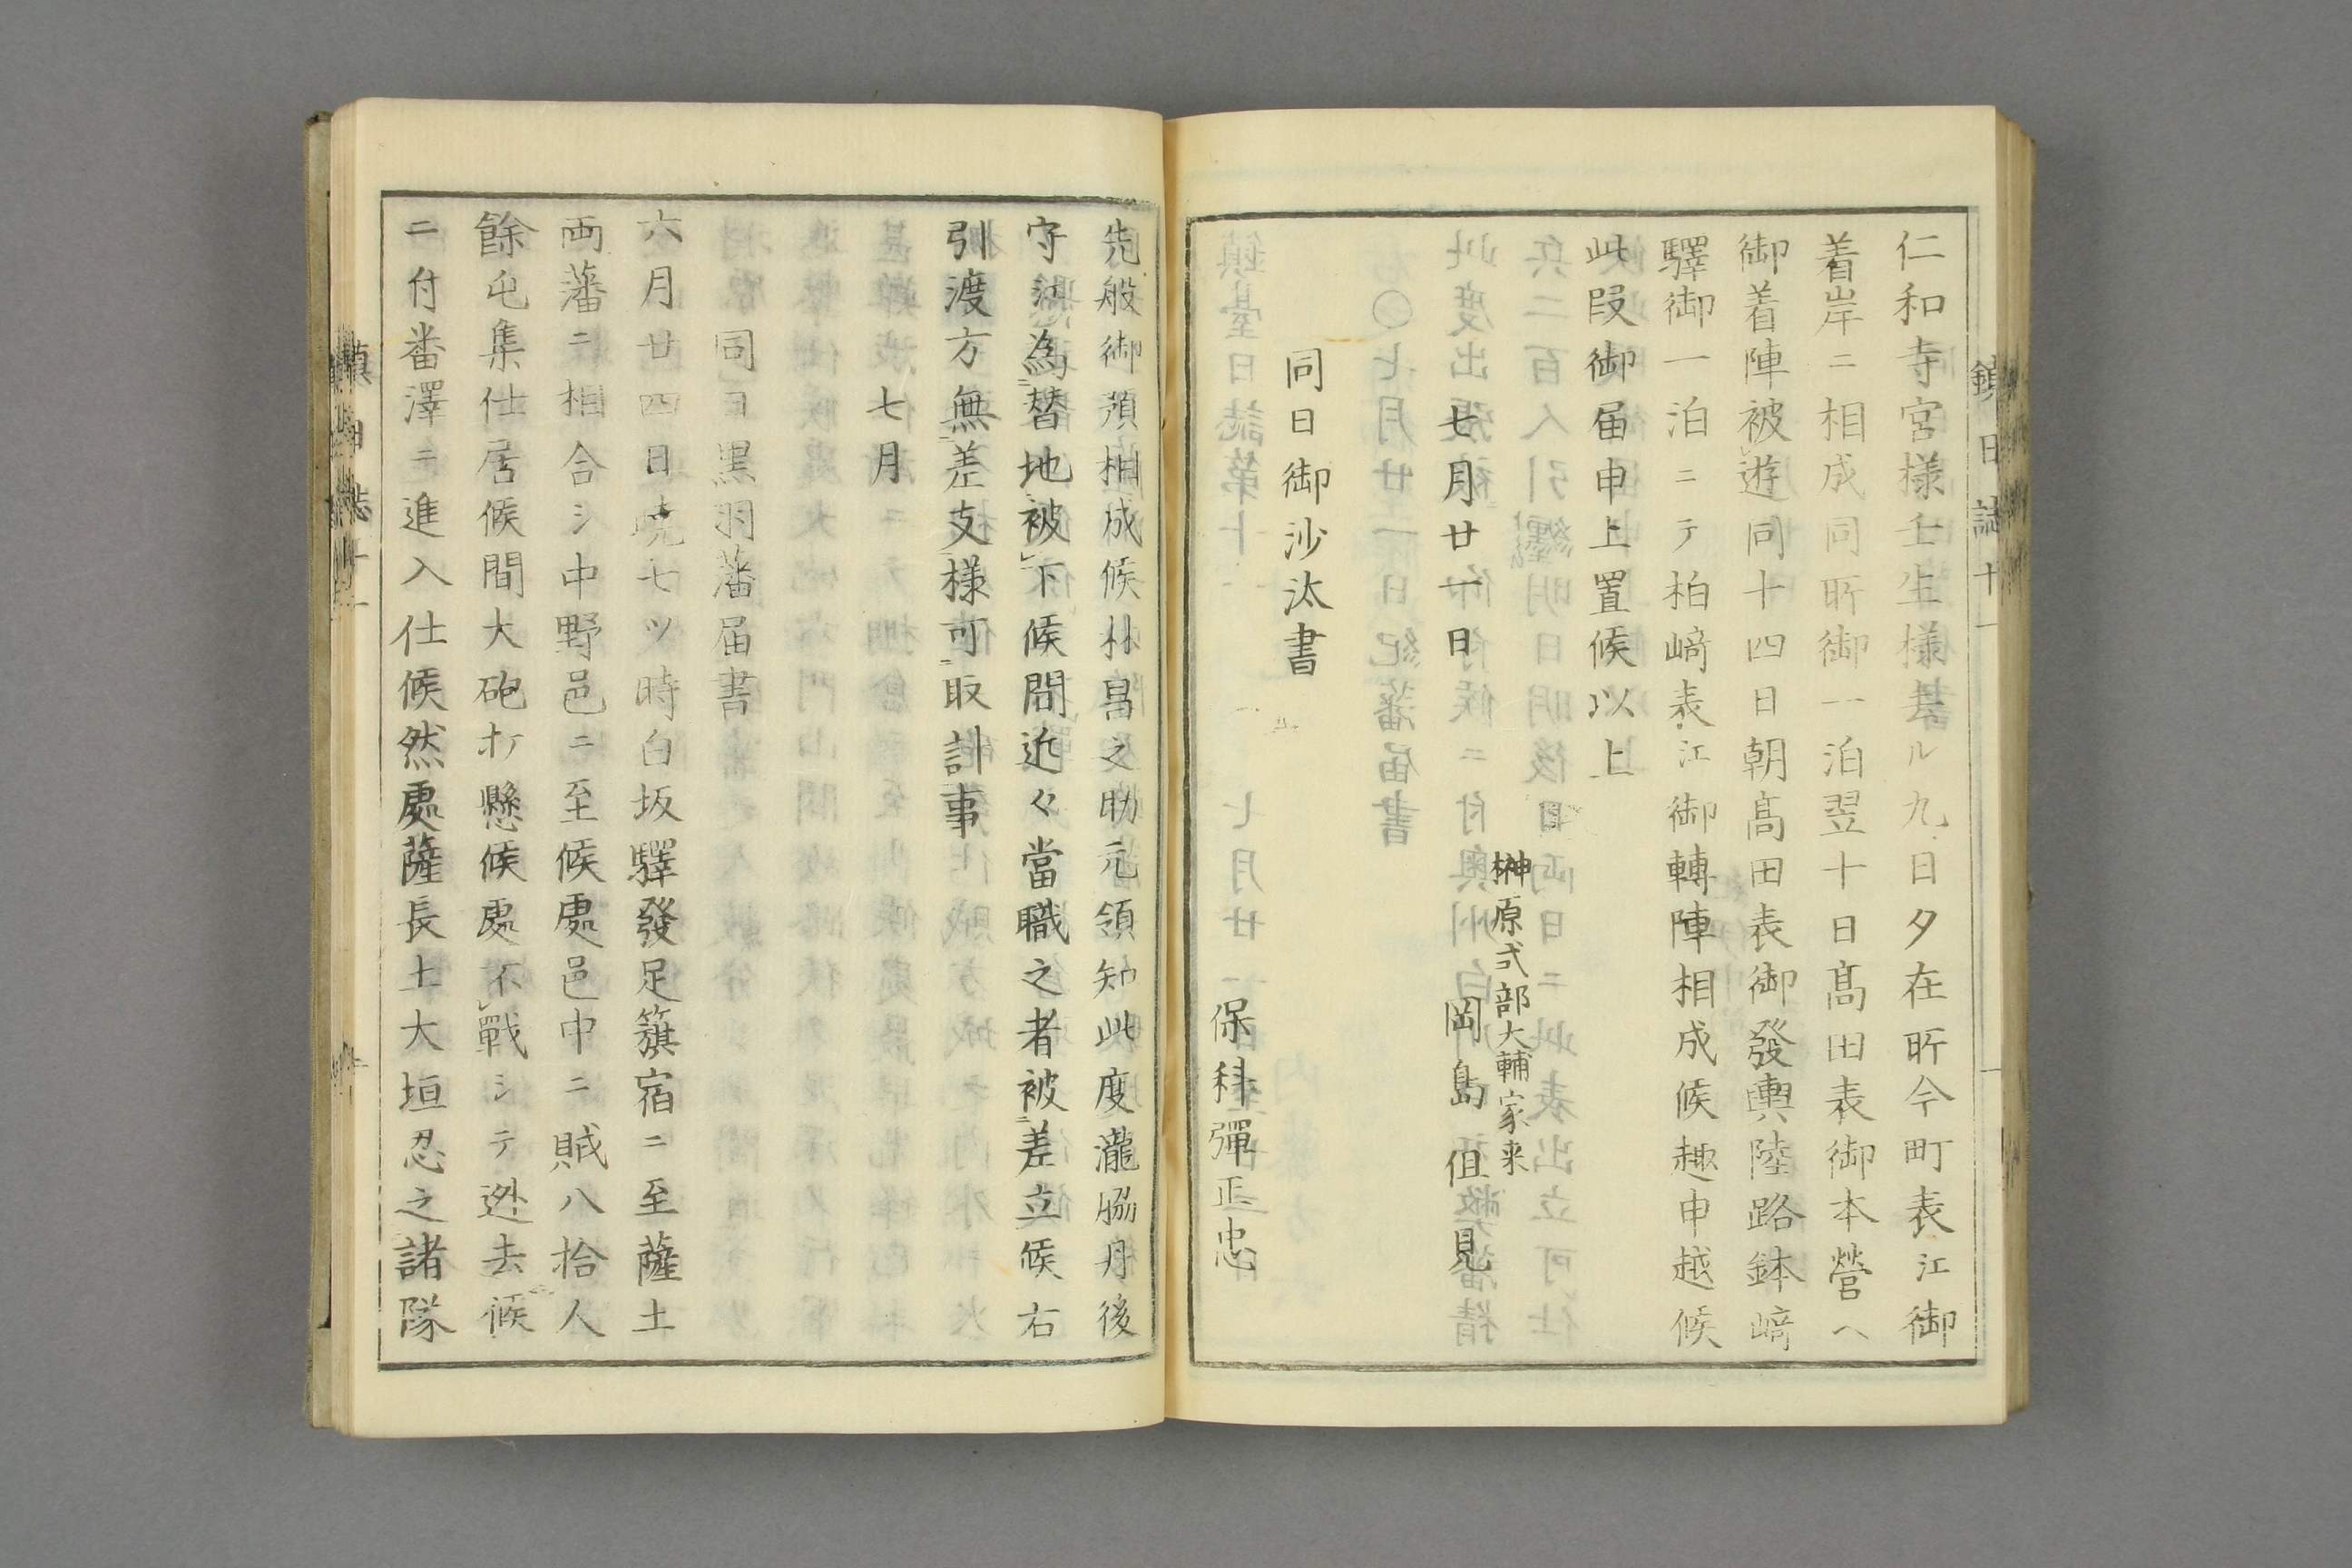 仁和寺宮樣壬生樣去ル九日夕在所今町表江御
着岸ニ相成同所御一泊翌十日髙田表御本營ヘ
御着陣被遊同十四日朝髙田表御發輿陸路鉢﨑
驛御一泊ニテ柏﨑表江御轉陣相成候趣申越候
此段御届申上置候以上
榊原式部大輔家来
七月廿一日 岡島但見
同日御沙汰書
保科彈正忠
先般御預相成候林昌之助元領知此度瀧脇丹後
守江為替地被下候間近々當職之者被差立候右
引渡方無差支様可取計事
七月
同日黒羽藩届書
六月廿四日暁七ツ時白坂驛發足籏宿ニ至薩土
両藩ニ相合シ中野邑ニ至候處邑中ニ賊八拾人
餘屯集仕居候間大砲打懸候處不戰シテ迯去候
ニ付番澤ニ進入仕候然處薩長土大垣忍之諸隊
鎮日誌十一